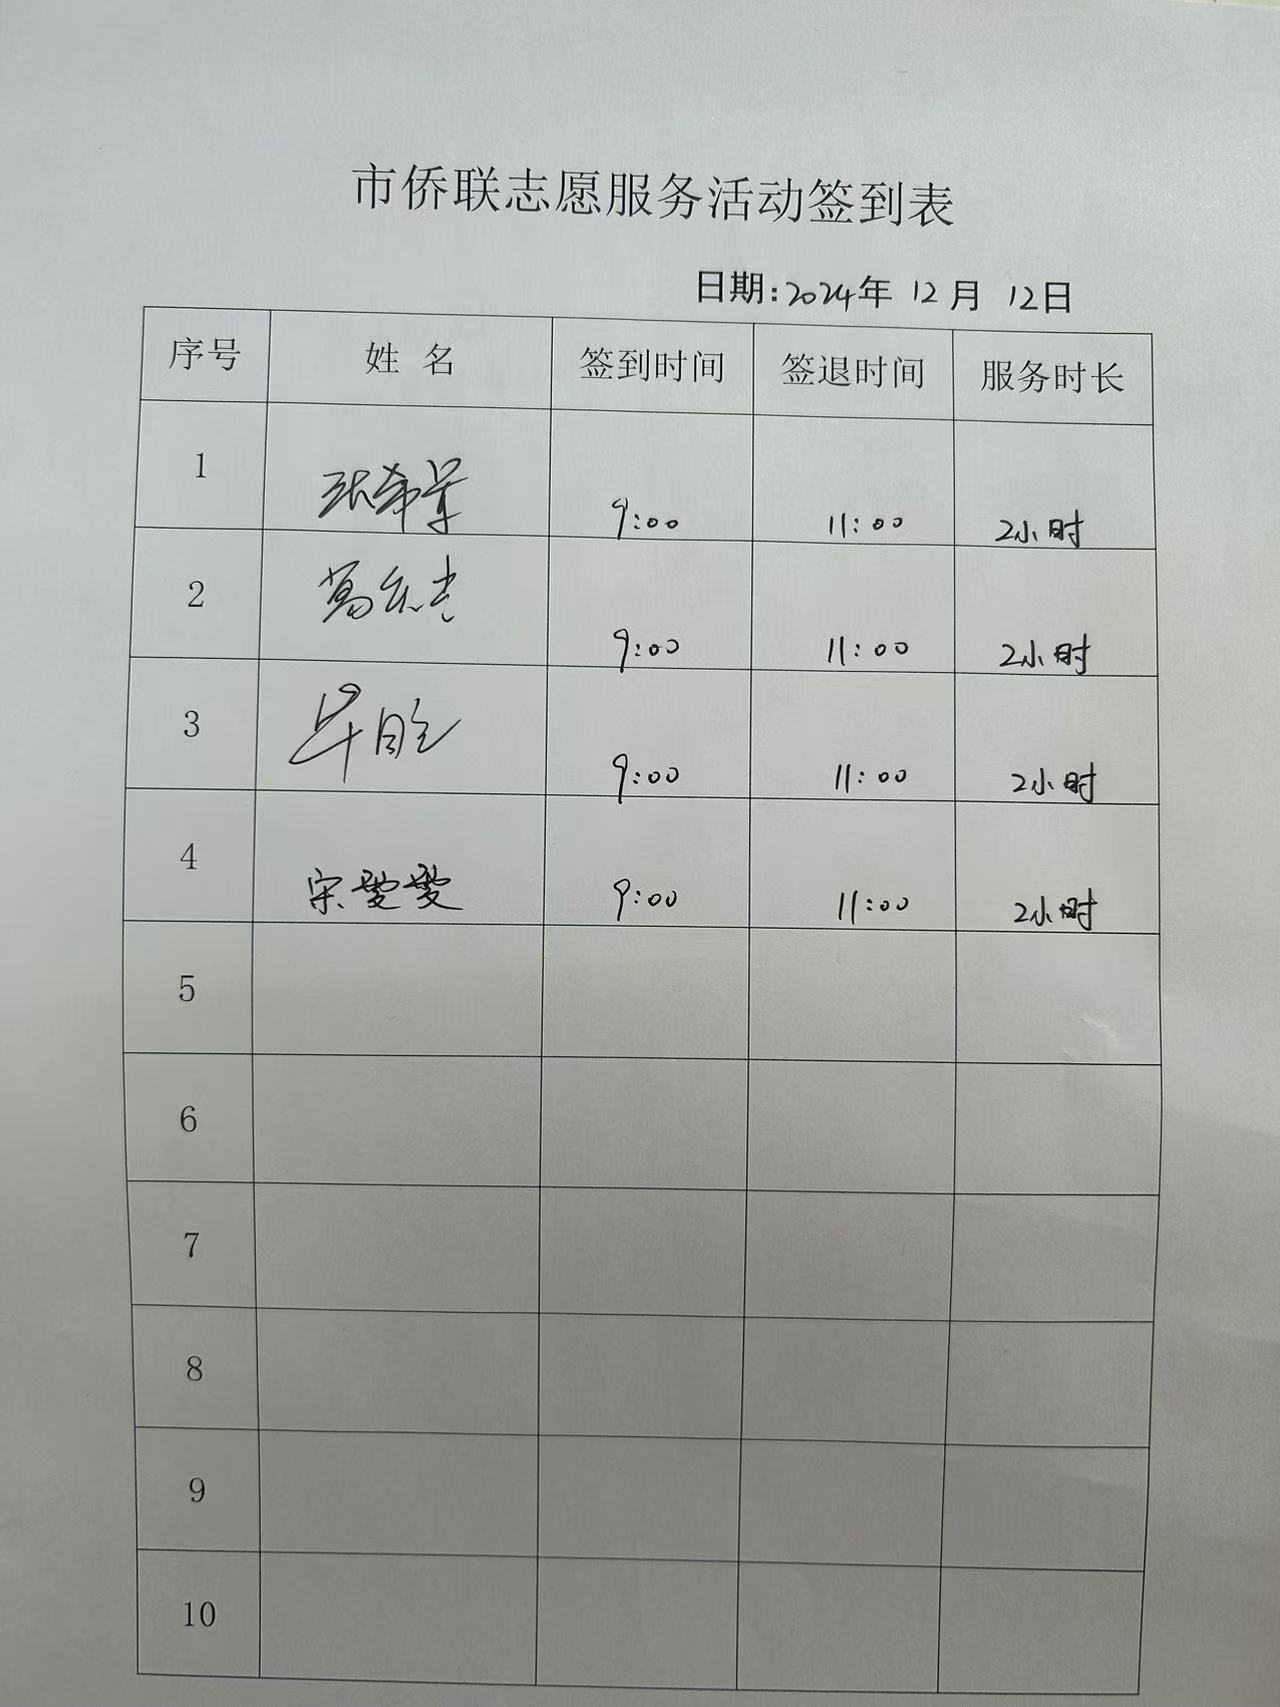 市侨联志愿服务活动签到表
日期:2024年 12月 12日
序号 姓 名 签到时间 签退时间 服务时长
1 9:00 11:00 2小时
2 9:00 11:00 2小时
3 9:00 11:00 2小时
4 宋雯雯 9:00 11:00 2小时
5
6
7
8
9
10